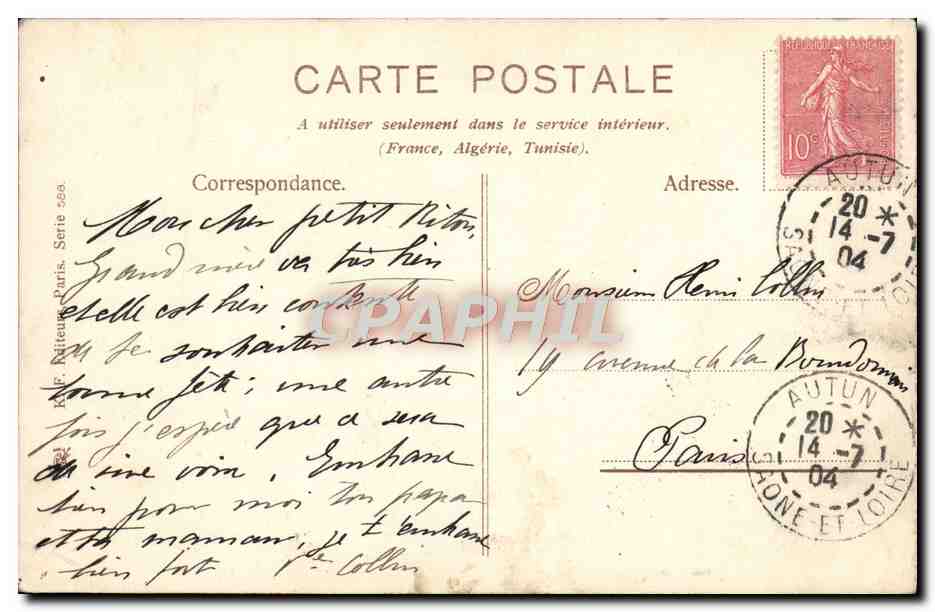 CARTE POSTALE
A utiliser seulement dans le service intérieur.
(France, Algérie, Tunisie).
RÉPUBLIQUE FRANÇAISE
10c
Correspondance.
Adresse.
Mon cher petit Riton,
Grand mère va très bien
et elle est bien contente
de te souhaiter une
bonne fête; une autre
fois j'espère que ce sera
de vive voix. Embrasse
bien pour moi ton papa
et ta maman, je t'embrasse
bien fort Vve Collin
Monsieur Henri Collin
19 avenue de la Bourdonnais
Paris
AUTUN
20 *
14 -7
04
SAONE-ET-LOIRE
AUTUN
20 *
14 -7
04
SAONE-ET-LOIRE
K.F. Editeurs, Paris. Serie 588.
CPAPHIL